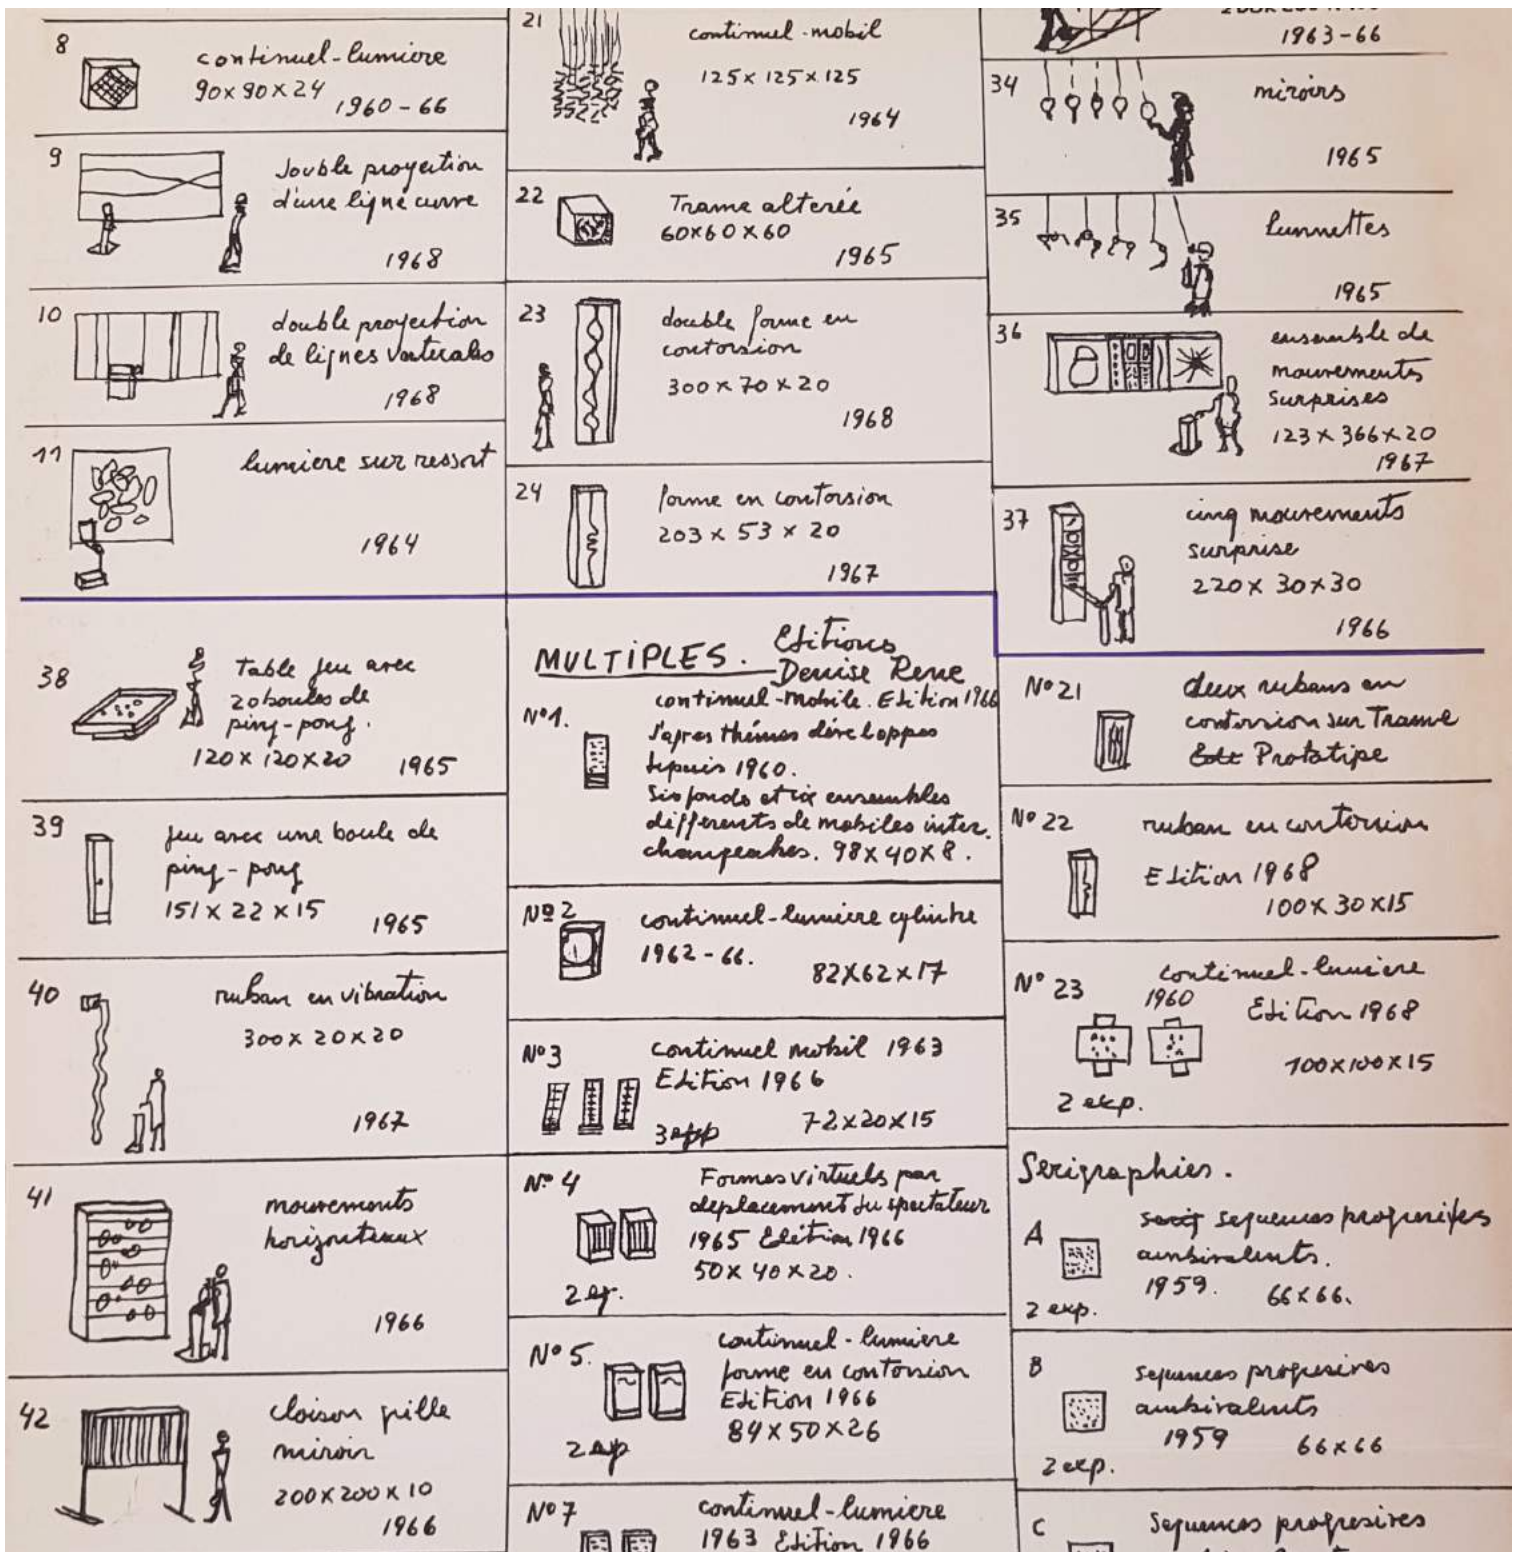 8
continuel-lumiere
90x90x24
1960-66
9
double proyection
d'une ligne curve
1968
10
double proyection
de lignes verticales
1968
11
lumiere sur ressort
1964
38
Table jeu avec
20 boules de
ping-pong.
120x120x20 1965
39
jeu avec une boule de
ping-pong
151x22x15 1965
40
ruban en vibration
300x20x20
1967
41
mouvements
horizonteaux
1966
42
cloison grille
miroir
200x200x10
1966
21
continuel-mobil
125x125x125
1964
22
Trame alterée
60x60x60
1965
23
double forme en
contorsion
300x70x20
1968
24
forme en contorsion
203x53x20
1967
MULTiPLES. Editions
Denise Rene
continuel-mobile. Edition 1966
Nº1.
d'apres thémes développes
depuis 1960.
Six fonds et six ensembles
differents de mobiles inter.
changeables. 98x40x8.
Nº2
continuel-lumiere cylindre
1962-66.
82x62x17
Nº3
continuel mobil 1963
Edition 1966
72x20x15
Nº 4
Formes virtuels par
deplacement du spectateur
1965 Edition 1966
50x40x20.
2 ex.
Nº 5.
continuel-lumiere
forme en contorsion
Edition 1966
84x50x26
2 exp
Nº7
continuel-lumiere
1963 Edition 1966
1963-66
34
miroirs
1965
35
lunnettes
1965
36
ensemble de
mouvements
surprises
123x366x20
1967
37
cinq mouvements
surprise
220x30x30
1966
Nº21
deux rubans en
contorsion sur Trame
Prototipe
Nº 22
ruban en contorsion
Edition 1968
100x30x15
Nº 23
continuel-lumiere
1960
Edition 1968
100x100x15
2 exp.
Serigraphies.
A
sequences progresives
ambivalents.
1959. 66x66.
2 exp.
B
sequences progresives
ambivalents
1959 66x66
2 exp.
C
Sequences progresives